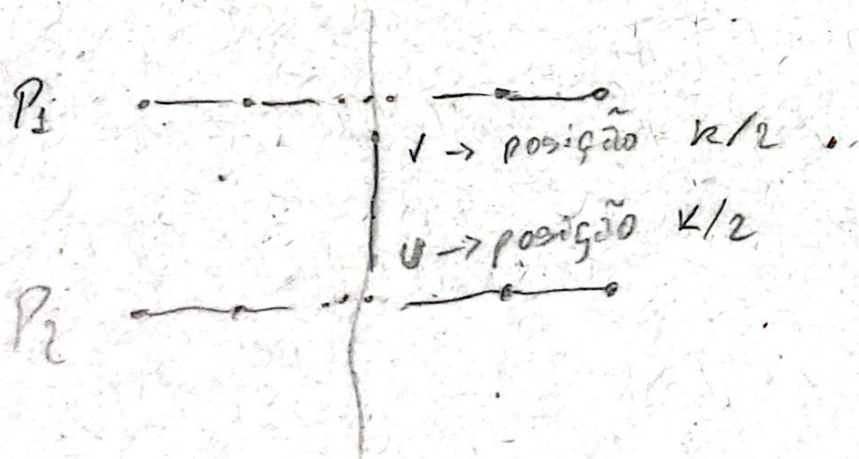 P1
v → posição k/2
u → posição k/2
P2